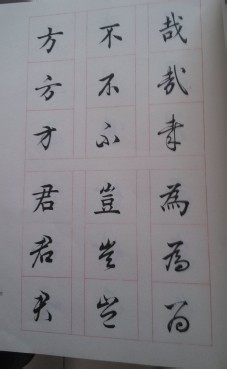 哉不方
哉不方
哉不方
為豈君
為豈君
為豈君